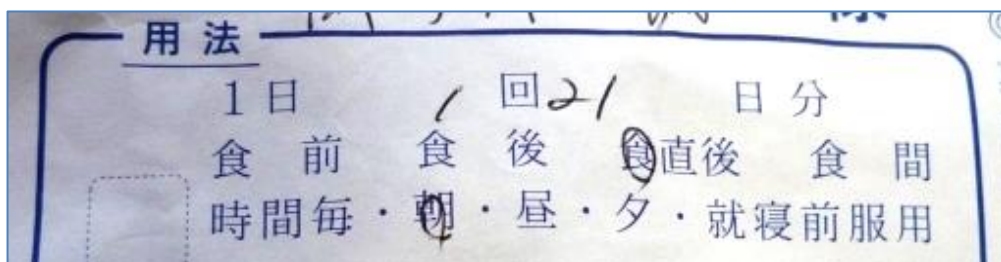 様
用法
1日 1 回 21 日分
食前 食後 食直後 食間
時間毎・朝・昼・夕・就寝前服用